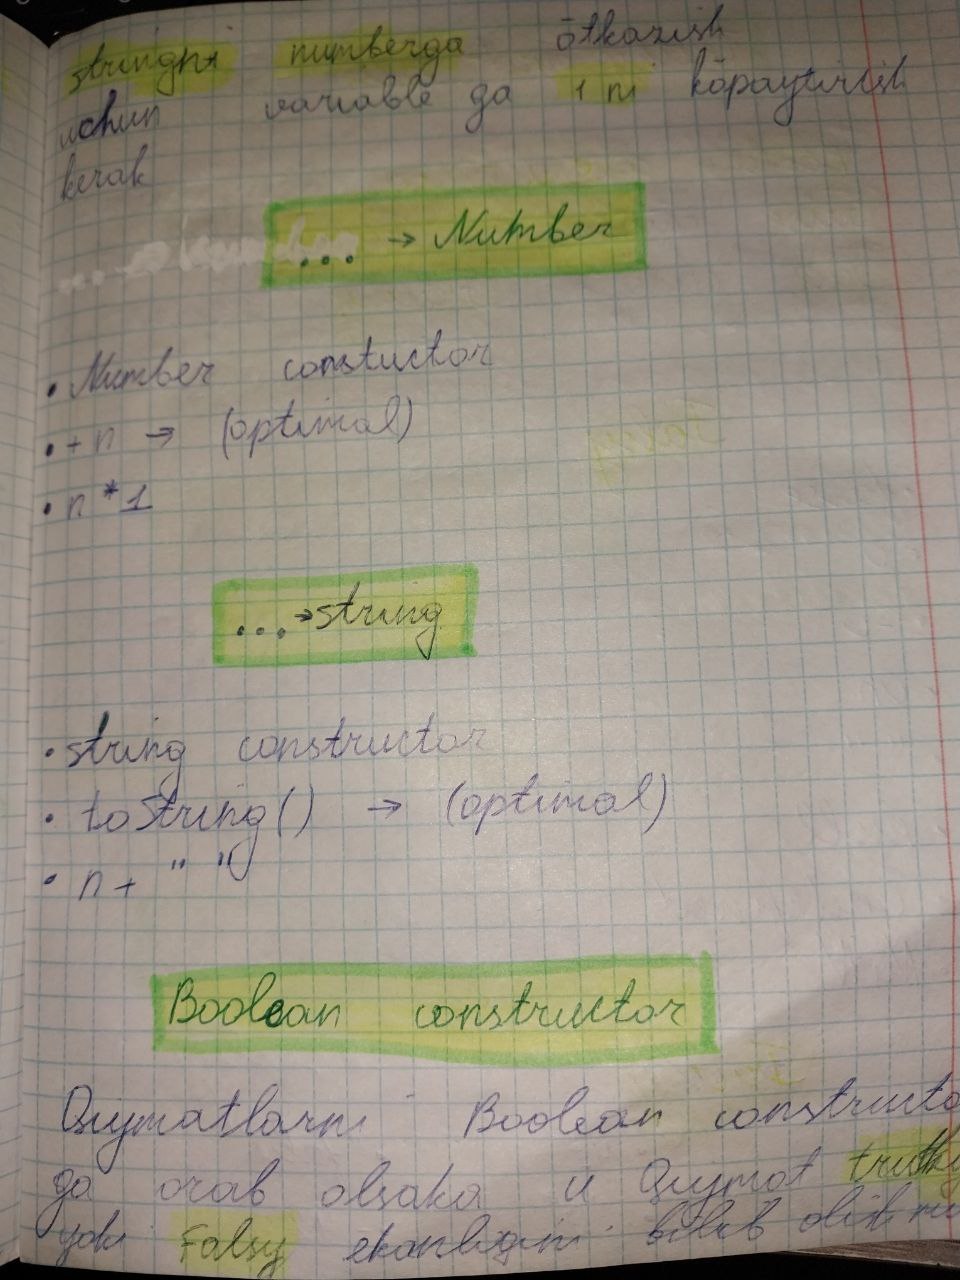 stringni numberga ōtkazish
uchun variable ga 1 ni kōpaytirish
kerak
... → Number
• Number constuctor
• + n → (optimal)
• n * 1
... → string
• string constructor
• toString() → (optimal)
• n + " "
Boolean constructor
Qiymatlarni Boolean constructo
ga orab olsaka u Qiymat truthy
yoki Falsy ekanligini bilib olish